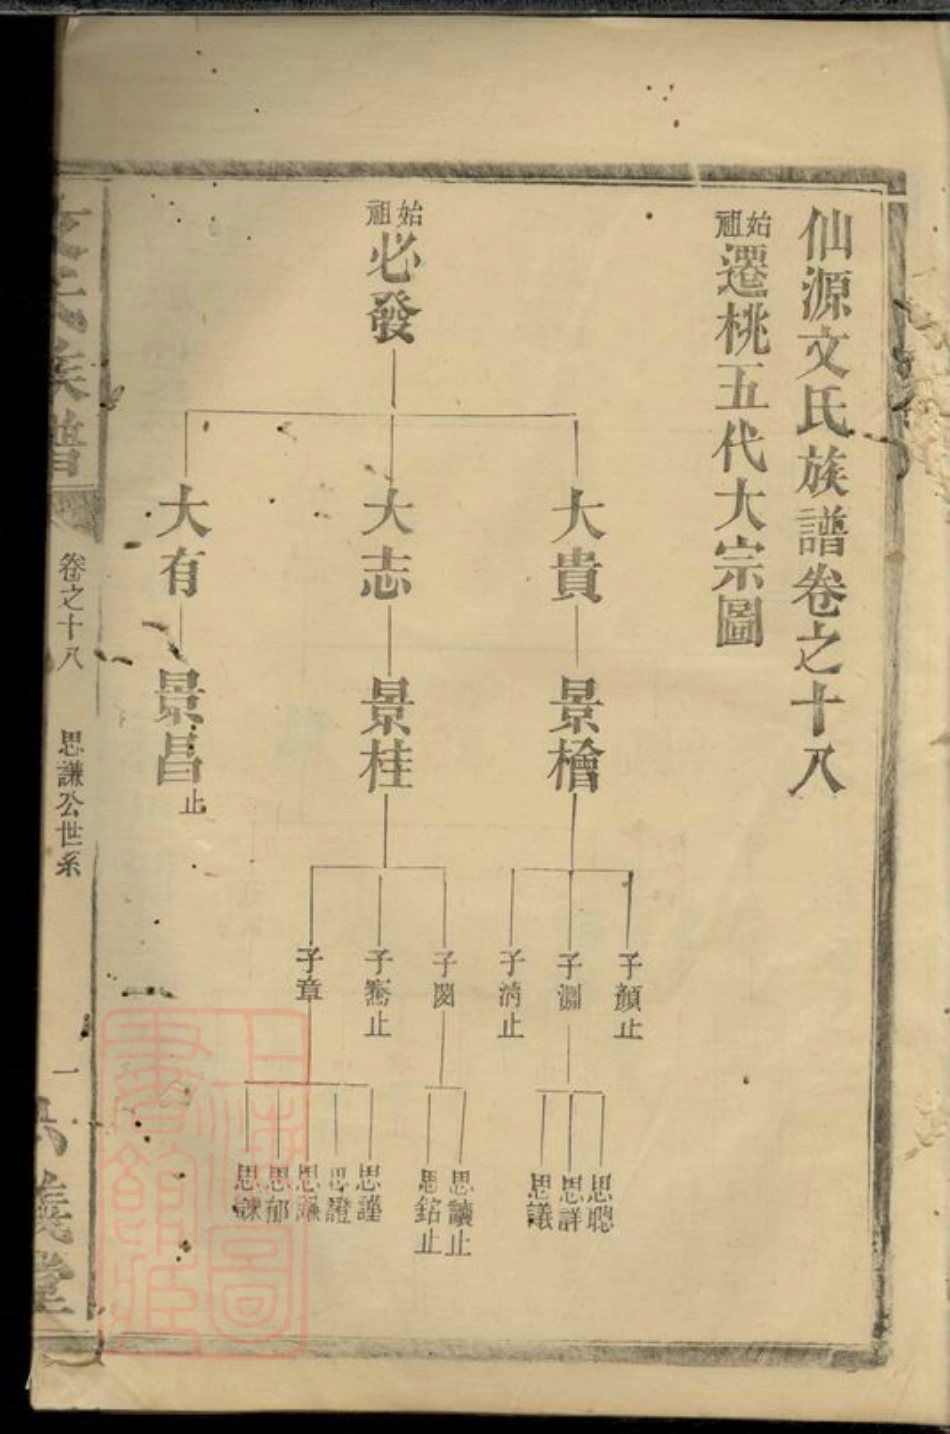 仙源文氏族譜卷之十八
始祖遷桃五代大宗圖
始祖必發
大貴
大志
大有
景檜
景桂
景昌止
子顏止
子淵
子淸止
子閔
子騫止
子章
思聰
思詳
思議
思讓止
思銘止
思謹
思證
思謙
思郁
思諫
文氏族譜
卷之十八
思謙公世系
一
義堂
上海圖書館藏